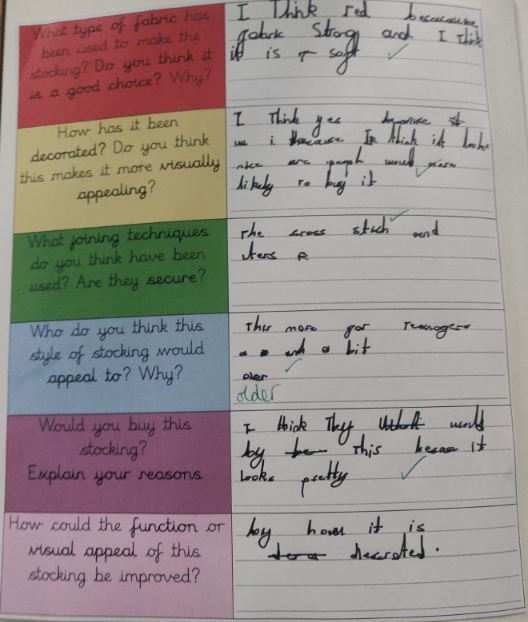 What type of fabric has
been used to make the
stocking? Do you think it
is a good choice? Why?
I Think red
fabric Strong and I think
it is soft
How has it been
decorated? Do you think
this makes it more visually
appealing?
I Think yes
I think it looks
nice are people would more
likely to buy it
What joining techniques
do you think have been
used? Are they secure?
the cross stich and
Who do you think this
style of stocking would
appeal to? Why?
This more for Teenagers
and a bit
older
Would you buy this
stocking?
Explain your reasons
I think They would
by this becaus it
looks pretty
How could the function or
visual appeal of this
stocking be improved?
by how it is
decrated.